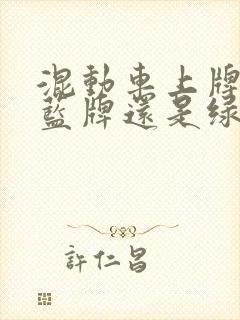 混動車上牌
藍牌還是綠
許仁昌